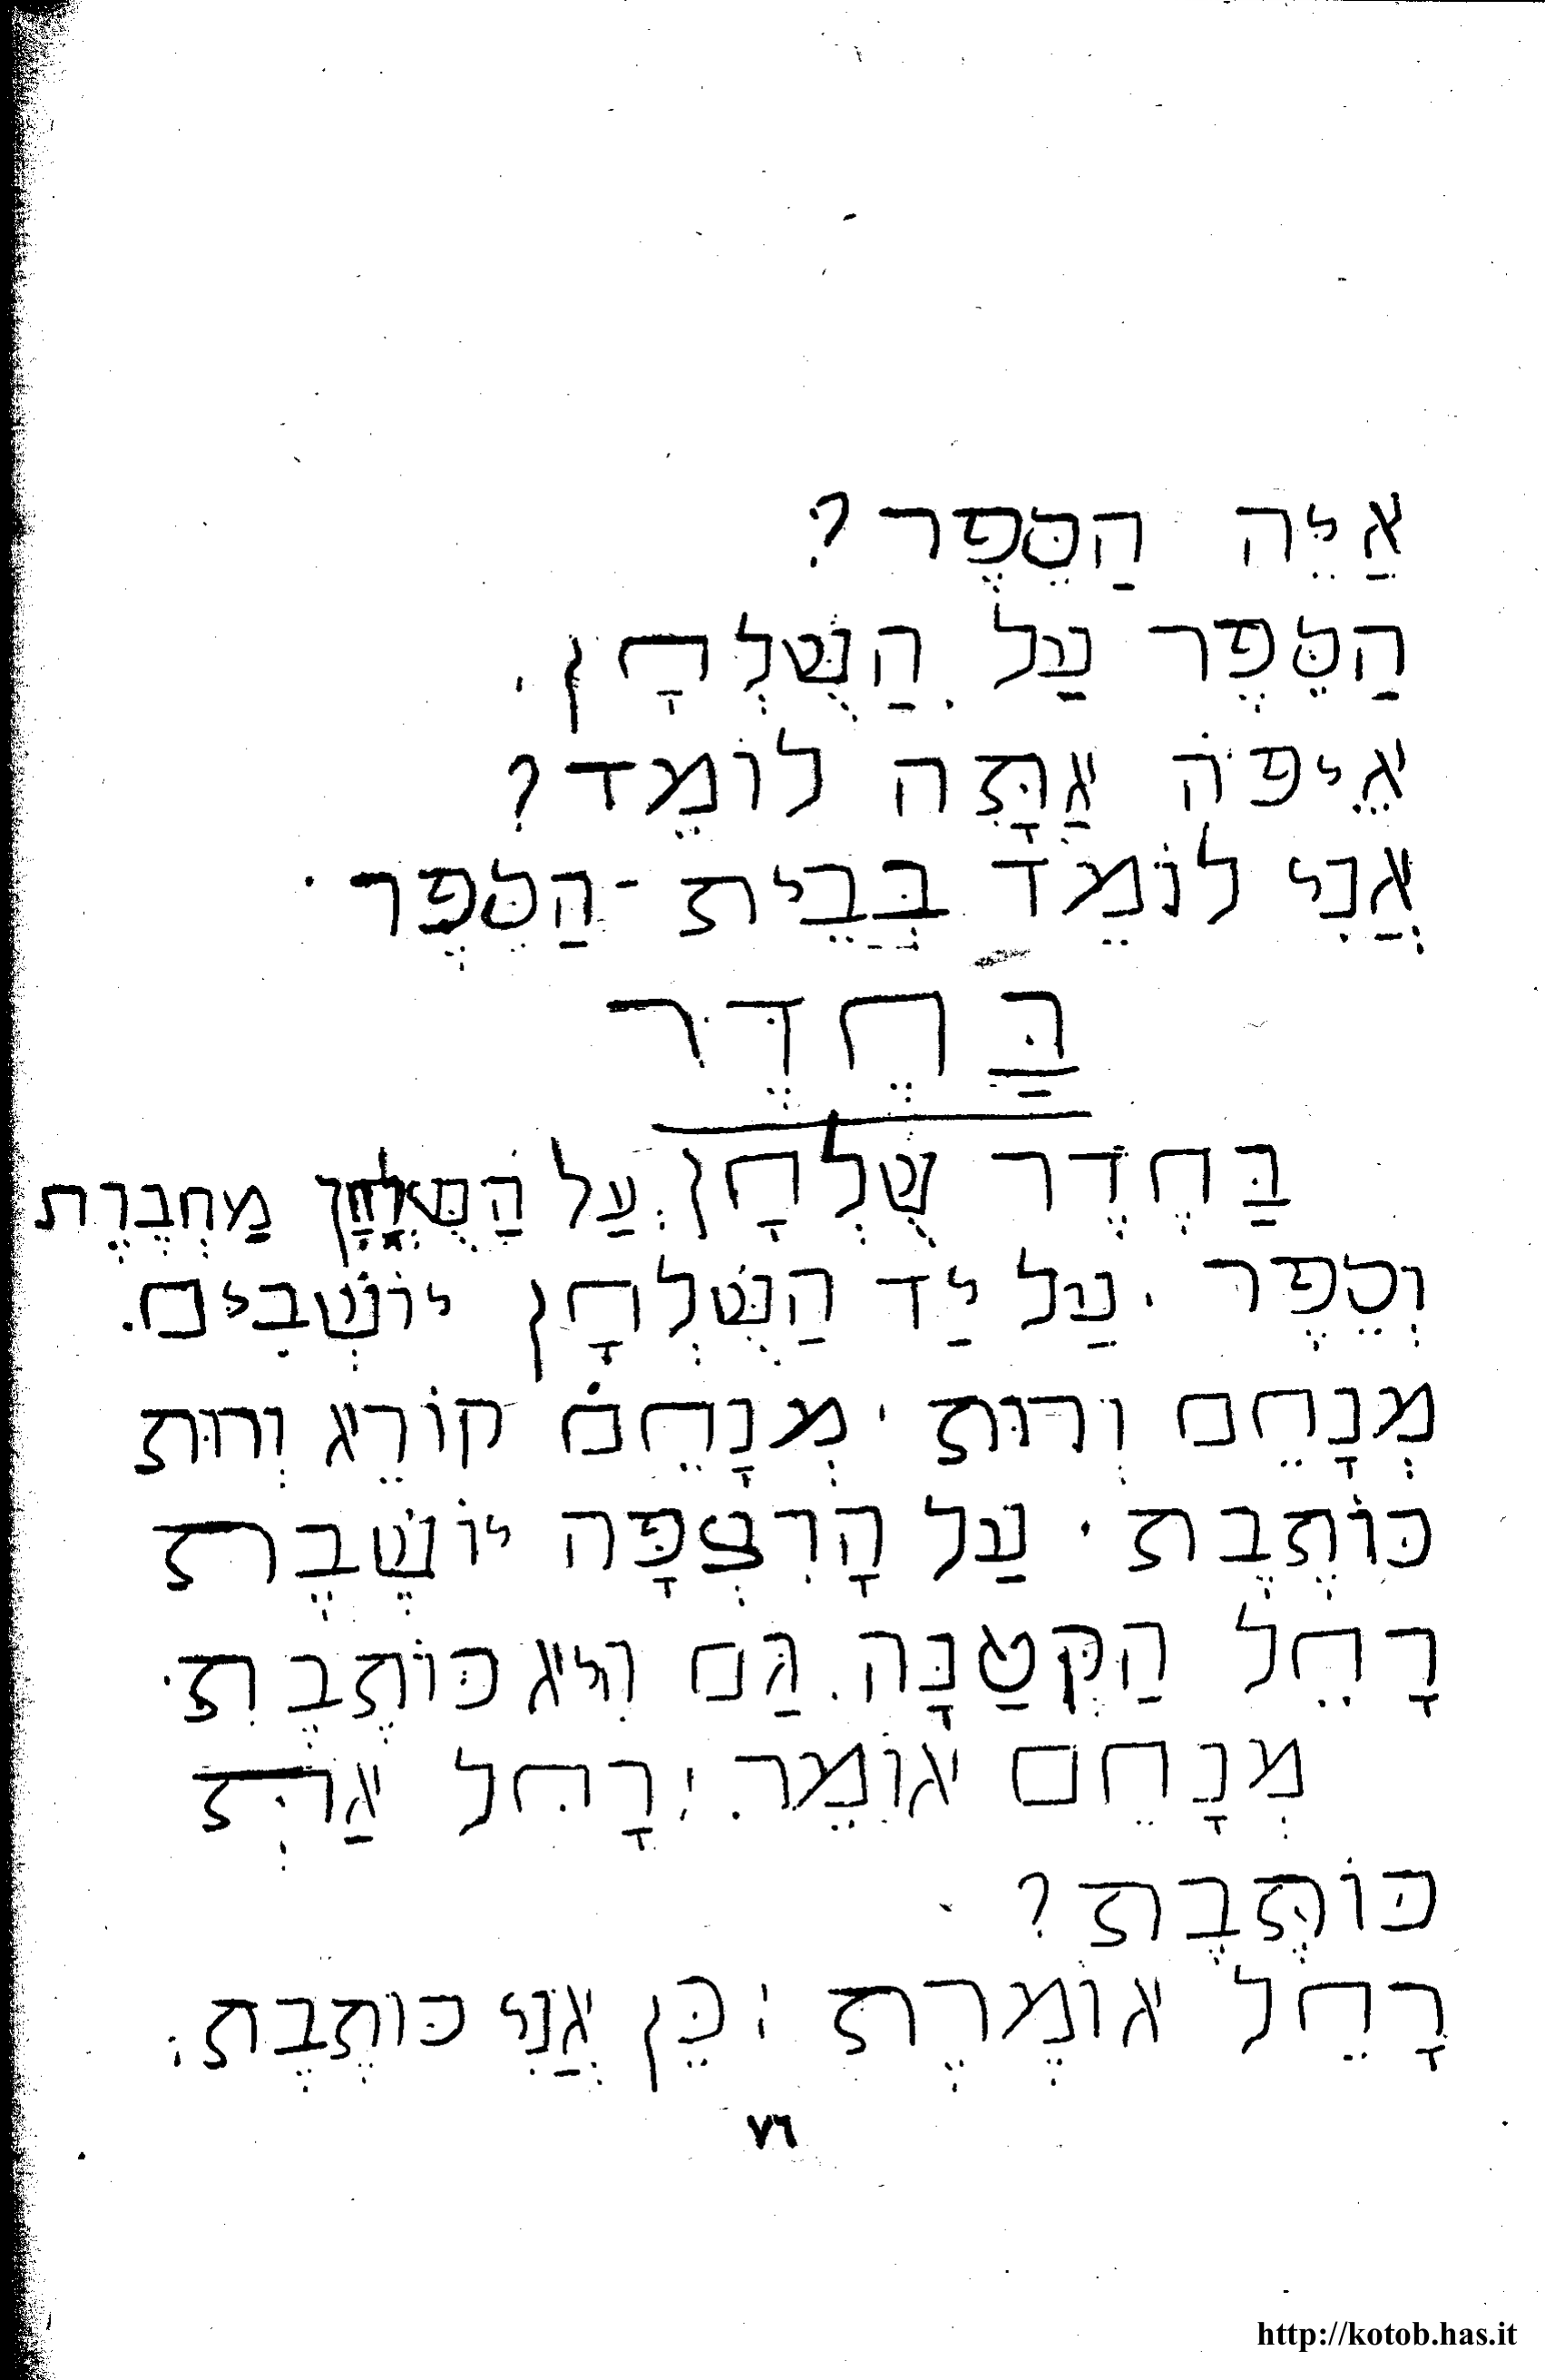 אַיֵּה הַסֵּפֶר?
הַסֵּפֶר עַל הַשֻּׁלְחָן.
אֵיפֹה אַתָּה לוֹמֵד?
אֲנִי לוֹמֵד בְּבֵית-הַסֵּפֶר.
בַּחֶדֶר
בַּחֶדֶר שֻׁלְחָן. עַל הַשֻּׁלְחָן מַחְבֶּרֶת
וְסֵפֶר. עַל יַד הַשֻּׁלְחָן יוֹשְׁבִים.
מְנַחֵם וְרוּת. מְנַחֵם קוֹרֵא וְרוּת
כּוֹתֶבֶת. עַל הָרִצְפָּה יוֹשֶׁבֶת
רָחֵל הַקְּטַנָּה. גַּם הִיא כּוֹתֶבֶת.
מְנָחֵם אוֹמֵר: רָחֵל אַתְּ
כּוֹתֶבֶת?
רָחֵל אוֹמֶרֶת: כֵּן אֲנִי כּוֹתֶבֶת.
٧٦
http://kotob.has.it